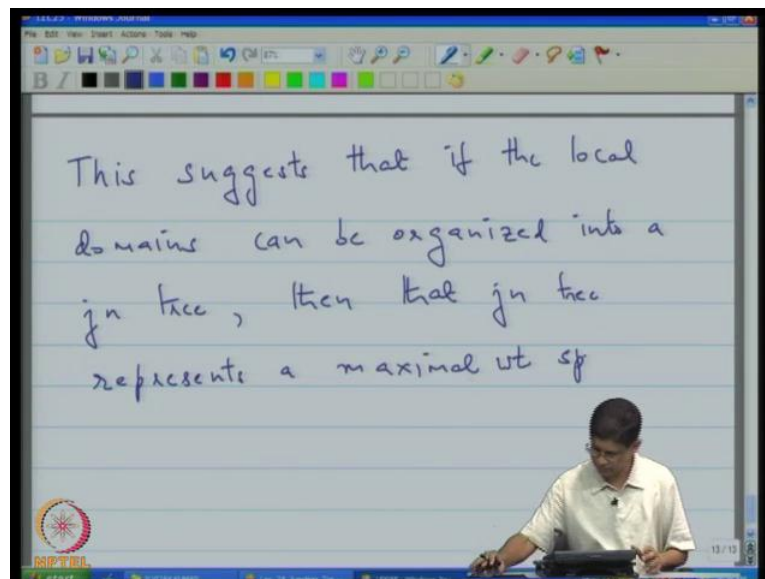 LEC25 - Windows Journal
File Edit View Insert Actions Tools Help
87%
B I
This suggests that if the local
domains can be organized into a
jn tree, then that jn tree
represents a maximal wt sp
13 / 13
NPTEL
start